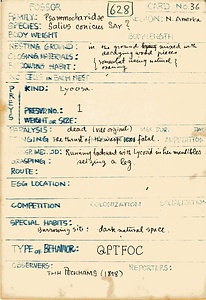 FOSSOR 628 CARD No. 36
FAMILY: Psammocharidae REGION: N. America
SPECIES: Salius conicus Say ?
BODY WEIGHT BODY LENGTH
NESTING GROUND: in the ground mixed with
decaying wood pieces
CLOSING MATERIALS:
CLOSING HABIT: { somewhat heavy natural }
opening
No. CELLS IN EACH NEST
PREYS
KIND: Lycosa
PREYS No.: 1
WEIGHT OR SIZE:
PARALYSIS: dead (see original)
STINGING: The thrust of the fatal.
METHOD: Running backward with Lycosid in her mandibles
GRASPING: seizing a leg
ROUTE:
EGG LOCATION:
COMPETITION COLONIZATION
SPECIAL HABITS:
Burrowing site: dark natural space.
TYPE OF BEHAVIOR: QPTFOC
OBSERVERS: REPORTERS:
THE PECKHAMS (1898)